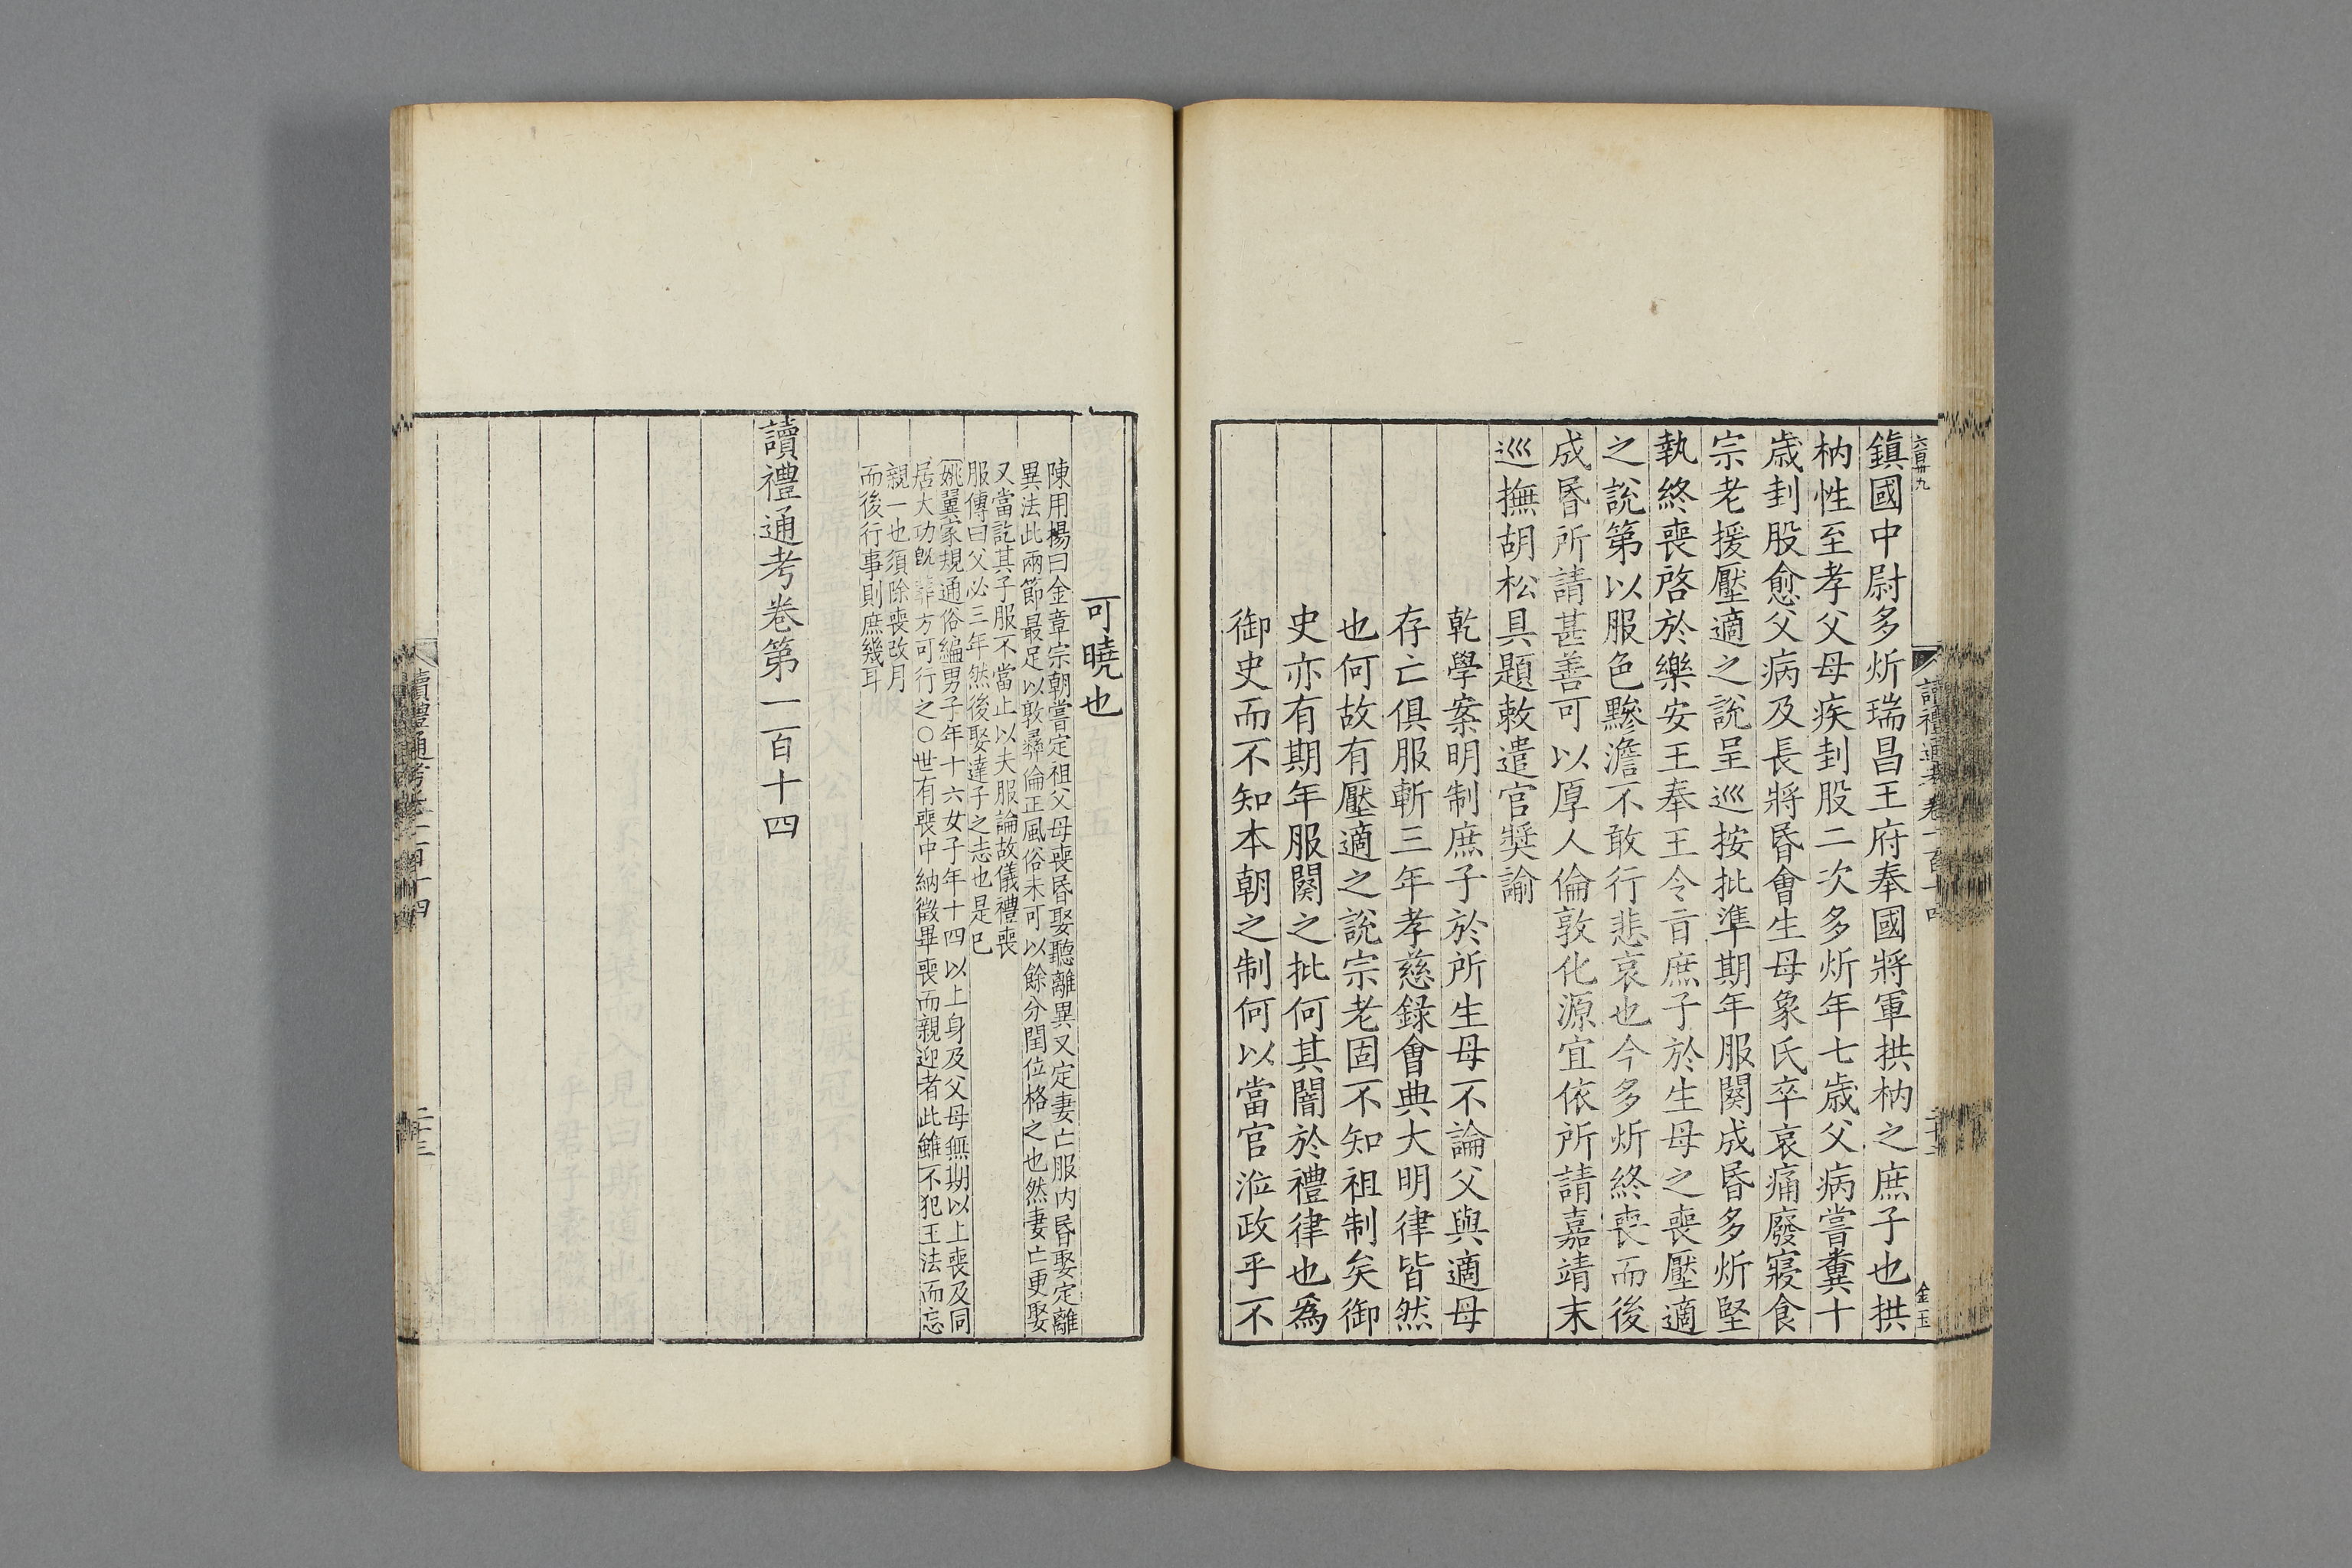 六百卅九
讀禮通考卷一百十四
金玉
鎮國中尉多炘瑞昌王府奉國將軍拱枘之庶子也拱
枘性至孝父母疾刲股二次多炘年七歳父病嘗糞十
歳刲股愈父病及長將昏會生母象氏卒哀痛廢寢食
宗老援壓適之說呈巡按批準期年服闋成昏多炘堅
執終喪啓於樂安王奉王令㫖庶子於生母之喪壓適
之說第以服色黲澹不敢行悲哀也今多炘終喪而後
成昏所請甚善可以厚人倫敦化源宜依所請嘉靖末
巡撫胡松具題敕遣官奬諭
乾學案明制庶子於所生母不論父與適母
存亡俱服斬三年孝慈録會典大明律皆然
也何故有壓適之說宗老固不知祖制矣御
史亦有期年服闋之批何其闇於禮律也爲
御史而不知本朝之制何以當官涖政乎不
可曉也
陳用揚曰金章宗朝嘗定祖父母喪昏娶聽離異又定妻亡服内昏娶定離
異法此兩節最足以敦彞倫正風俗未可以餘分閏位格之也然妻亡更娶
又當訖其子服不當止以夫服論故儀禮喪
服傳曰父必三年然後娶達子之志也是已
姚翼家規通俗編男子年十六女子年十四以上身及父母無期以上喪及同
居大功旣葬方可行之〇世有喪中納徵畢喪而親迎者此雖不犯王法而忘
親一也須除喪改月
而後行事則庶幾耳
讀禮通考卷第一百十四
讀禮通考卷一百十四
二十三